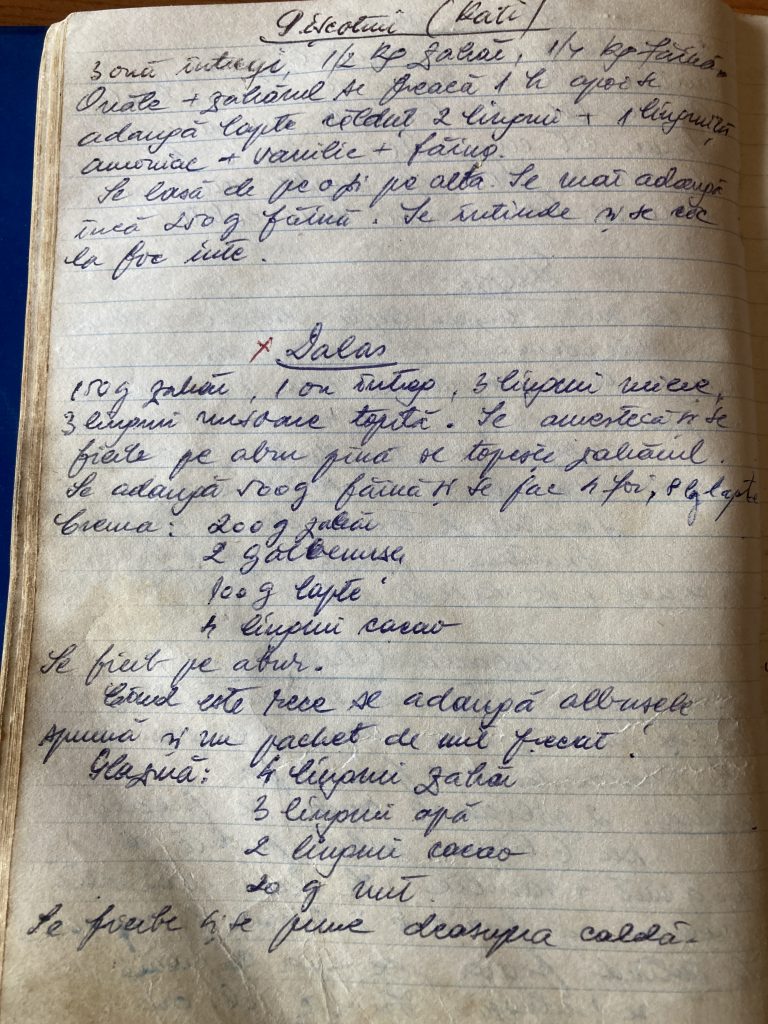 Pișcoturi (Kati)
3 ouă întregi, 1/2 kg zahăr, 1/4 kg făină.
Ouăle + zahărul se freacă 1 h apoi se
adaugă lapte călduț 2 linguri + 1 linguriță
amoniac + vanilie + făina.
Se lasă de pe o zi pe alta. Se mai adaugă
încă 250 g făină. Se întinde și se coc
la foc iute.
x Dalas
150 g zahăr, 1 ou întreg, 3 linguri miere,
3 linguri untură topită. Se amestecă și se
fierbe pe abur pînă se topește zahărul.
Se adaugă 500 g făină și se fac 4 foi, lapte
Crema: 200 g zahăr
2 gălbenușe
100 g lapte
4 linguri cacao
Se fierb pe abur.
Cînd este rece se adaugă albușele
spumă și un pachet de unt frecat.
Glazură: 4 linguri zahăr
3 linguri apă
2 linguri cacao
20 g unt.
Se fierbe și se pune deasupra caldă.